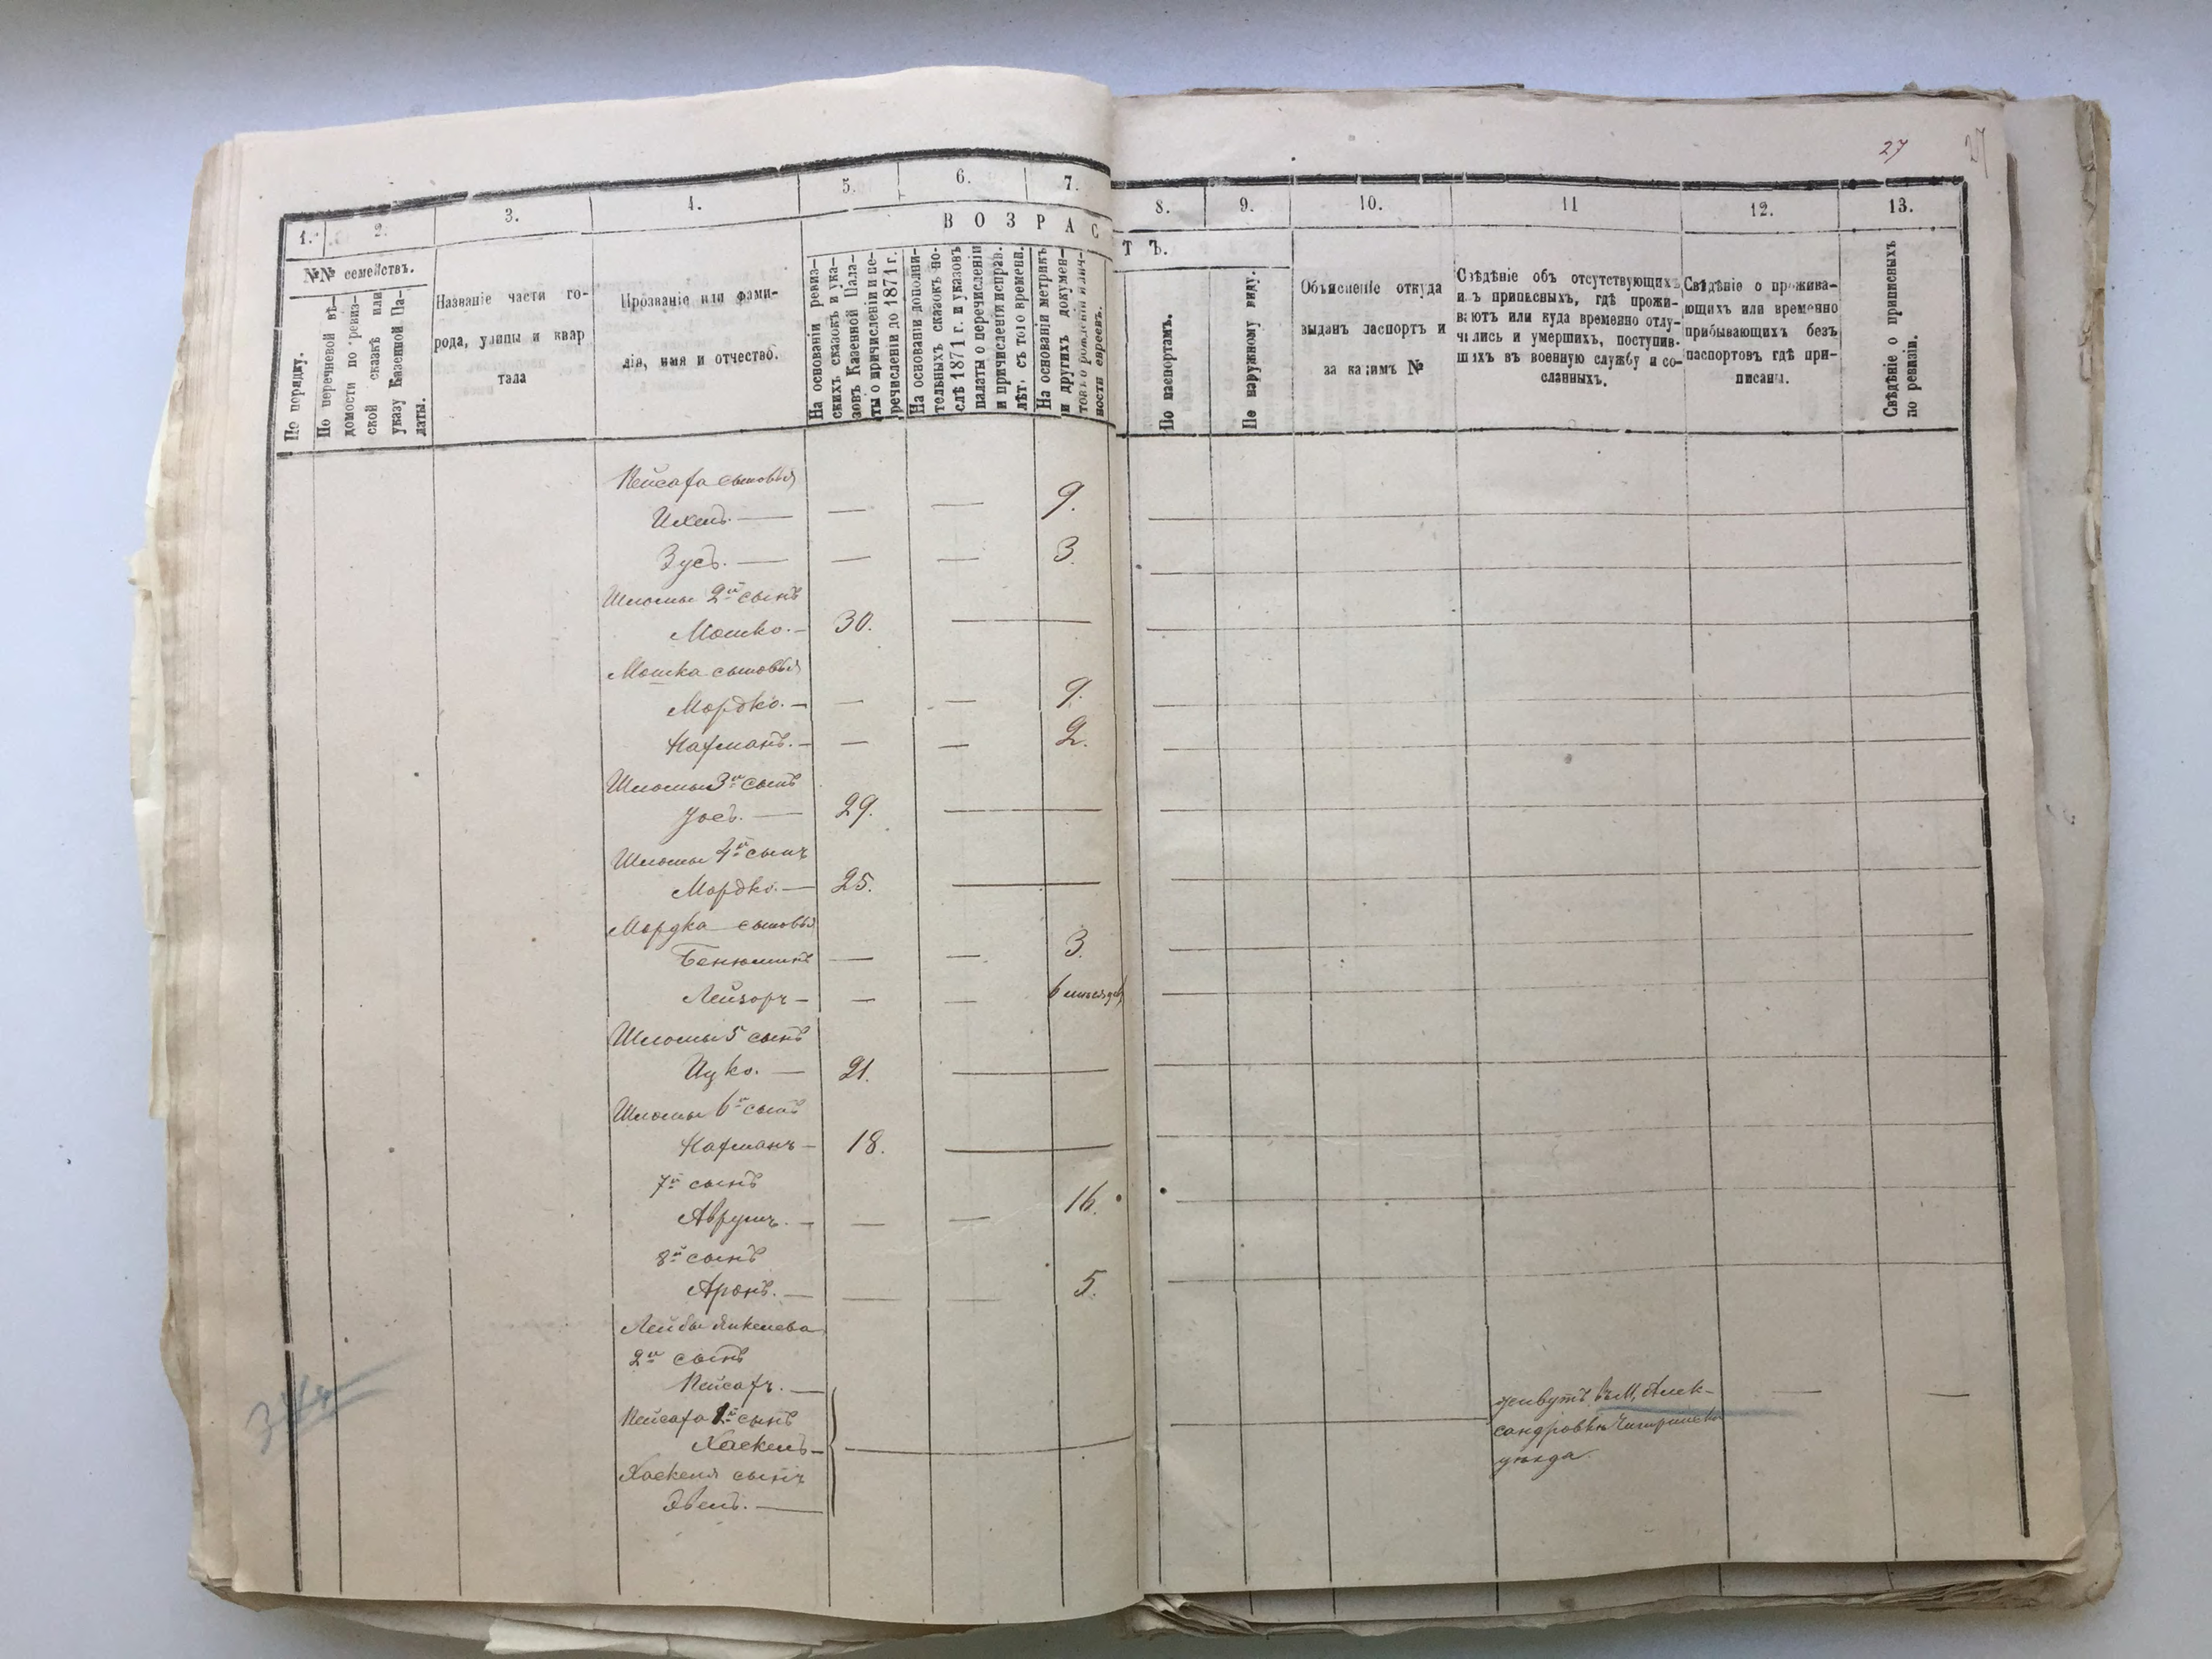 27
1. 2. 3. 4. 5. 6. 7. 8. 9. 10. 11 12. 13.
ВОЗРАСТЪ.
№№ семействъ.
По порядку.
По перечневой вѣ-
домости по ревиз-
ской сказкѣ или
указу Казенной Па-
латы.
Названіе части го-
рода, улицы и квар
тала
Прозваніе или фами-
лія, имя и отчество.
На основаніи ревиз-
скихъ сказокъ и ука-
зовъ Казенной Пала-
ты о причисленіи и пе-
речисленіи до 1871 г.
На основаніи дополни-
тельныхъ сказокъ по-
слѣ 1871 г. и указовъ
палаты о перечисленіи
и причисленіи исправ.
лѣт. съ того времени.
На основаніи метрикъ
и другихъ докумен-
товъ о рожденіи и лич-
ности евреевъ.
По паспортамъ.
По наружному виду.
Объясненіе откуда
выданъ паспортъ и
за какимъ №
Свѣдѣніе объ отсутствующихъ
изъ приписныхъ, гдѣ прожи-
ваютъ или куда временно отлу-
чились и умершихъ, поступив-
шихъ въ военную службу и со-
сланныхъ.
Свѣдѣніе о прожива-
ющихъ или временно
прибывающихъ безъ
паспортовъ гдѣ при-
писаны.
Свѣдѣніе о приписныхъ
по ревизіи.
Пейсаха сыновья
Ихель. — — — 9.
Зусь. — — — 3.
Шломы 2й сынъ
Мошко. — 30. —
Мошка сыновья
Мордко. — — — 9.
Нахманъ. — — — 2.
Шломы 3й сынъ
Іось. — 29. —
Шломы 4й сынъ
Мордко. — 25. —
Мордка сыновья
Бенюминъ — — 3.
Лейзоръ — — — 6 мѣсяцевъ
Шломы 5 сынъ
Ицко. — 21. —
Шломы 6й сынъ
Нахманъ — 18. —
7й сынъ
Аврумъ. — — — 16.
8й сынъ
Аронъ. — — — 5.
Лейбы Янкелева
2й сынъ
Пейсахъ. —
Пейсаха 1й сынъ
Хаскель —
Хаскеля сынъ
Эвель. —
живутъ въ М. Алек-
сандровкѣ Чигиринска
уѣзда